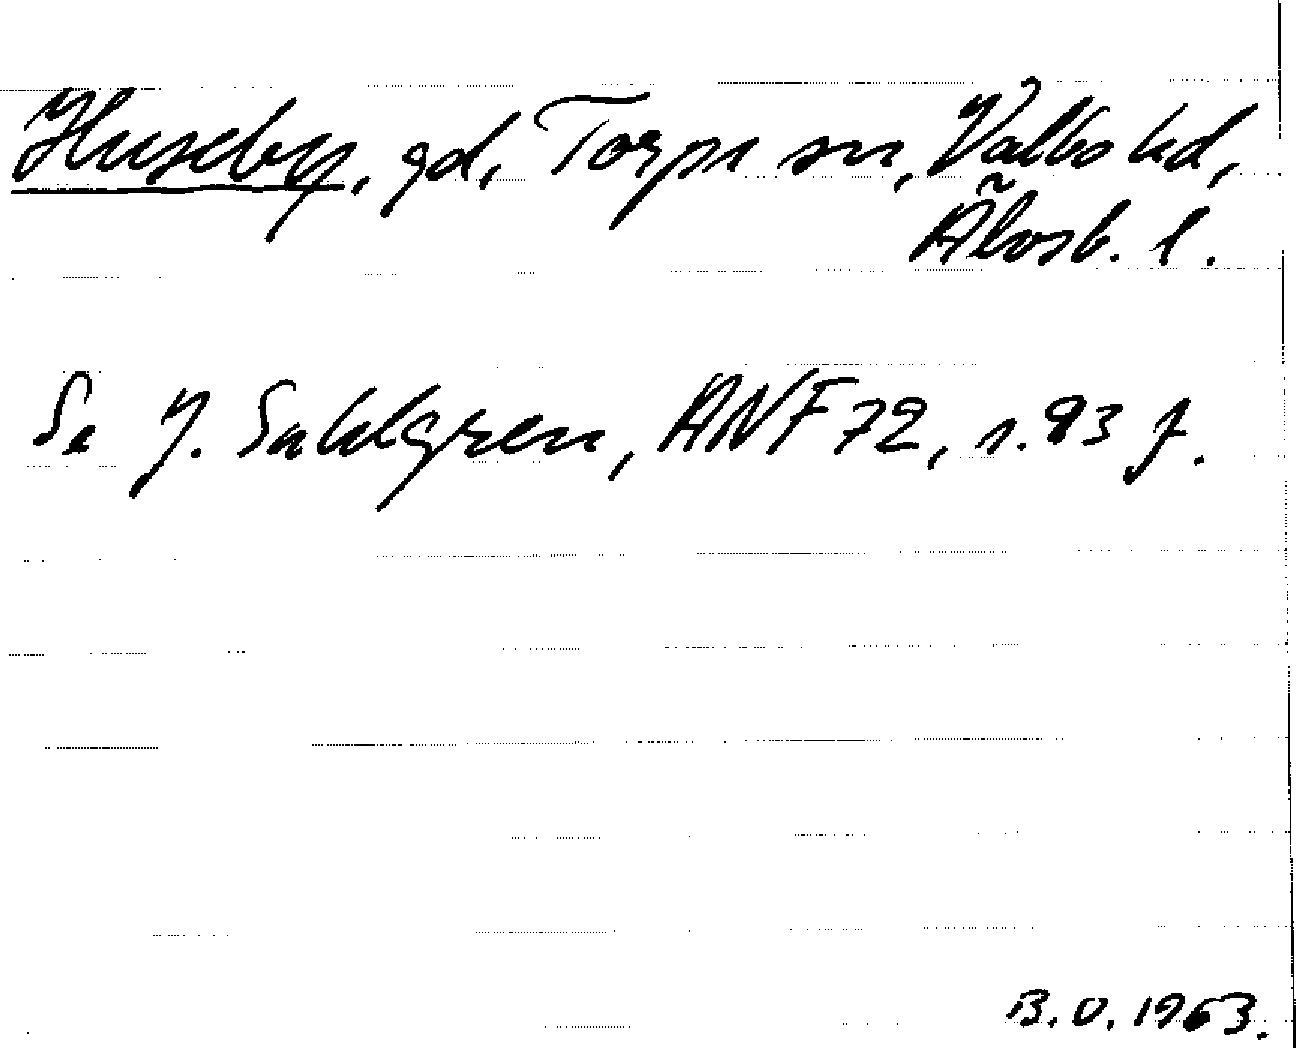 Huseby, gd, Torps sn, Valbo hd,
Älvsb. l.
Se J. Sahlgren, ANF 72, s. 93 f.
B.O. 1963.